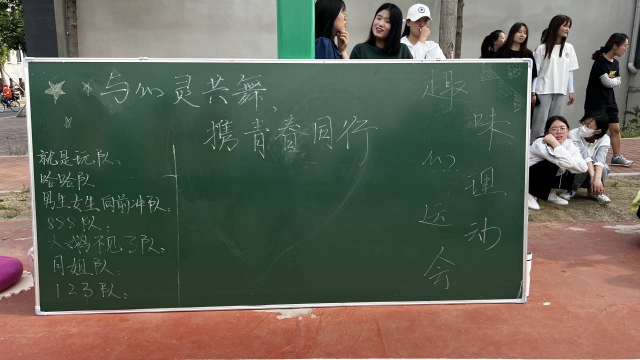 与心灵共舞、
携青春同行
趣味心理运动会
就是玩队。
哈哈队
男生女生向前冲队。
888队。
不见了队。
月姐队。
123队。